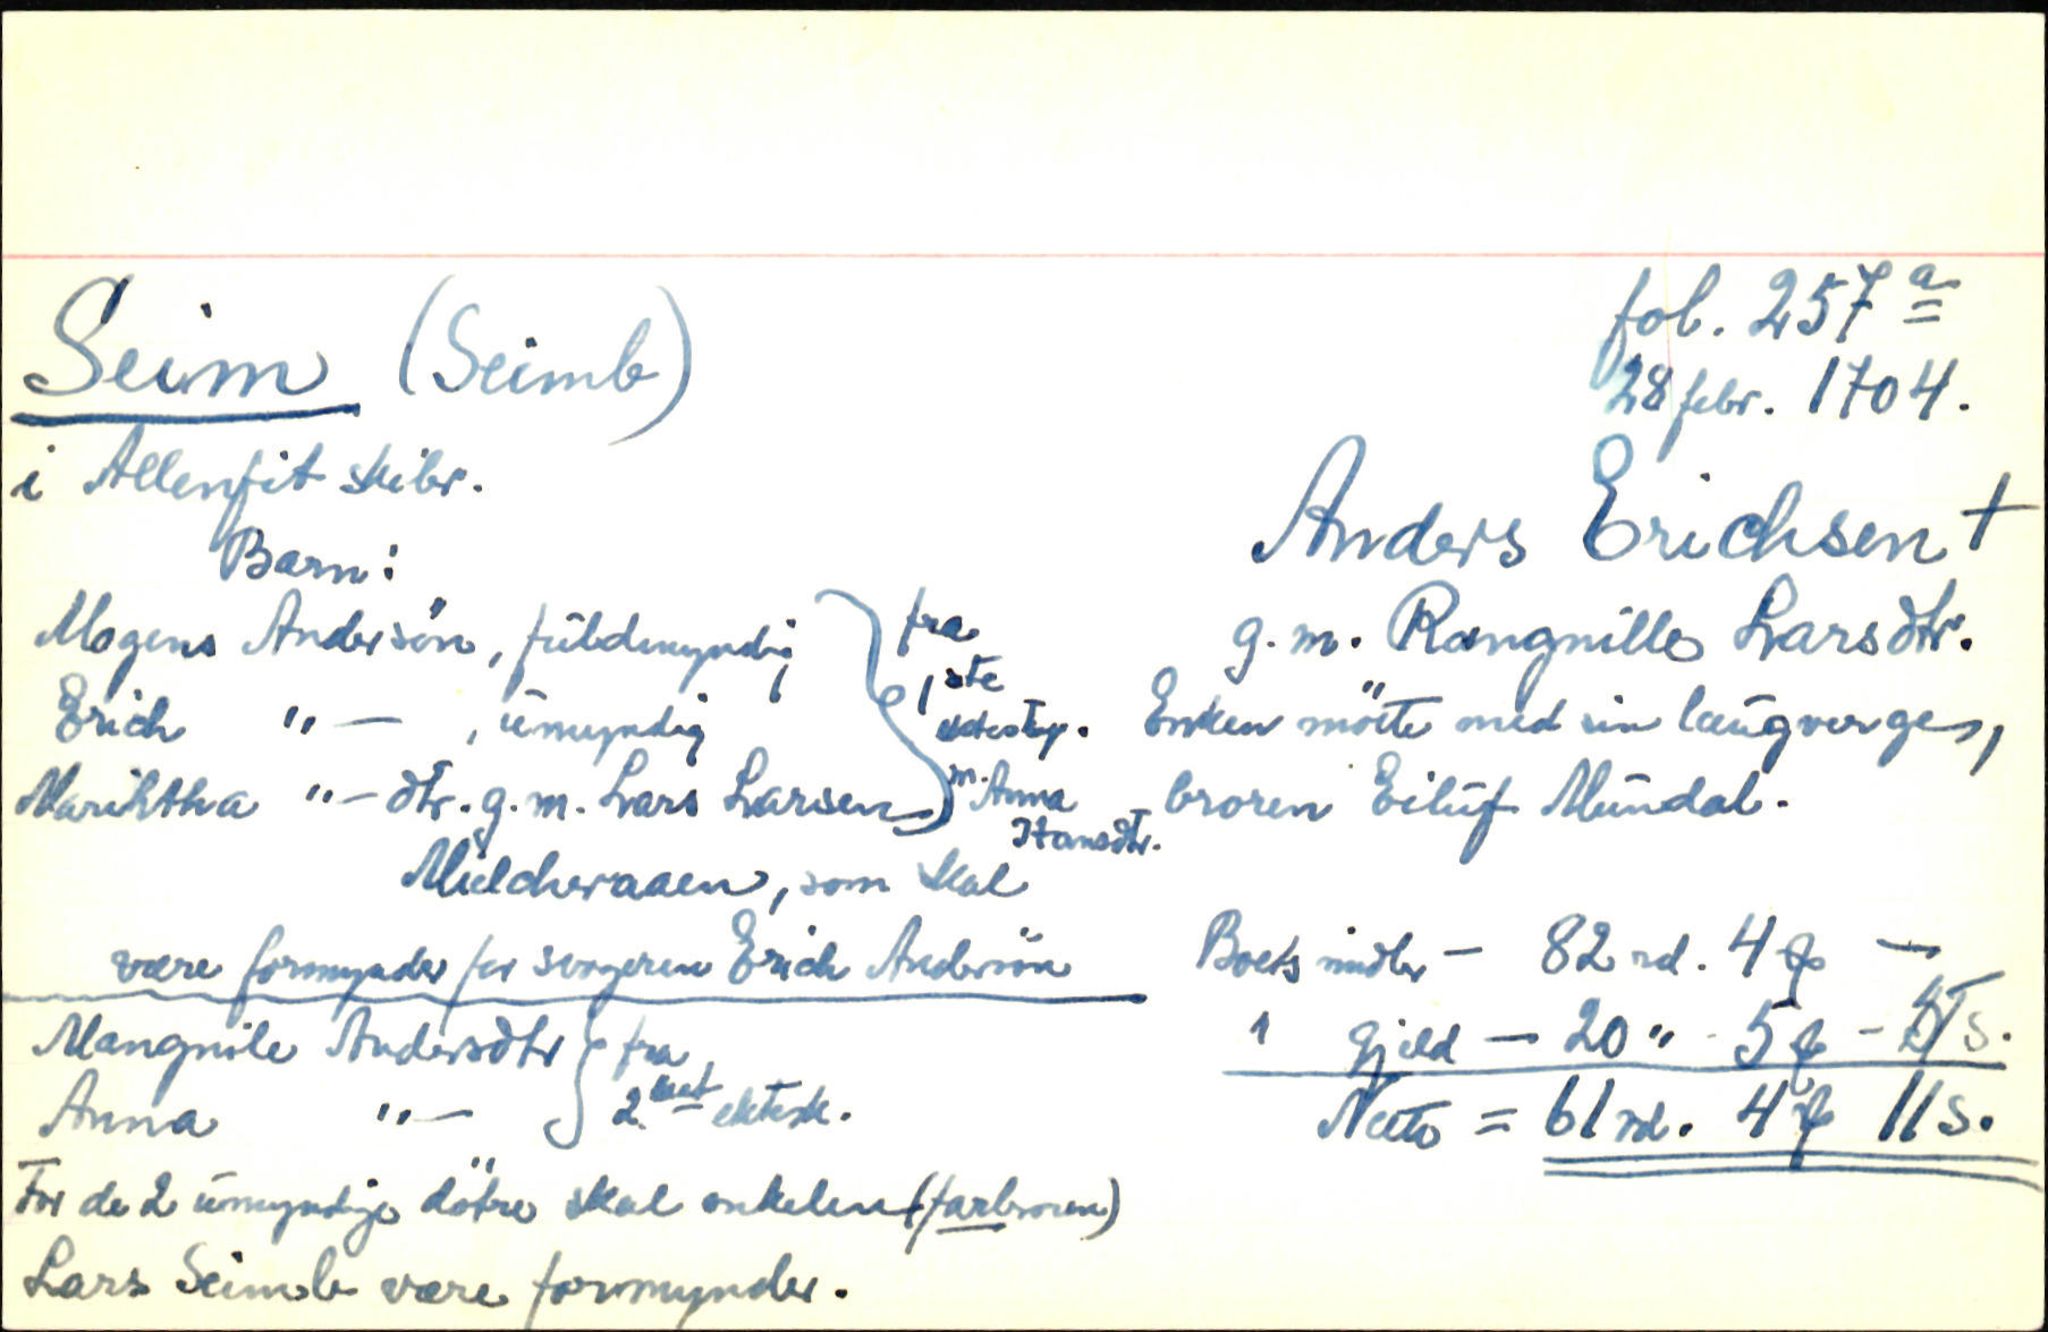 Seim (Seimb)
fol. 257 a
28 febr. 1704.
i Allenfit skibr.
Anders Erichsen +
g.m. Rangnille Larsdtr.
Enken mötte med sin laugverge,
broren Eiluf Mundal.
Barn:
Mogens Andersön, fuldmyndig
Erich " — , umyndig
Marihtha " — dtr. g.m. Lars Larsen
Mielcheraaen, som skal
fra
1ste
ektesk.
m. Anna
Hansdtr.
være formynder for svogeren Erich Andersön
Mangnile Andersdtr
Anna " —
fra
2 net ektesk.
For de 2 umyndige dötre skal onkelen (farbroren)
Lars Seimb være formynder.
Boets midler — 82 rd. 4 —
Gjeld — 20 " - 5 - s.
Netto = 61 rd. 4 11 s.